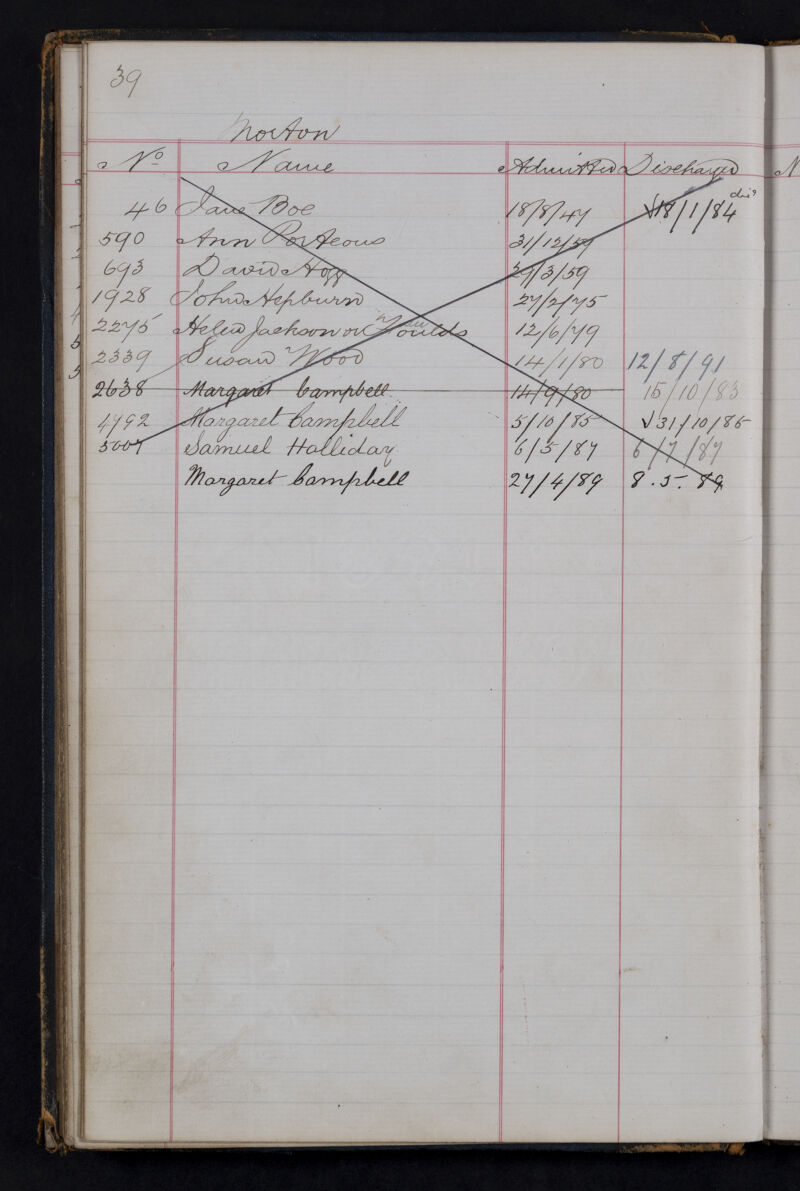 39
Morton
No Name Admitted Discharged
46 Jane Boe 18/8/47 √18/1/84
590 Ann Porteous 31/12/57
693 David Hogg 29/3/59
1928 John Hepburn 27/2/75
2275 Helen Jackson or Foulds 12/6/79
2339 Susan Wood 14/1/80 12/8/91
2638 Margaret Campbell 14/9/80 15/10/83
4792 Margaret Campbell 5/10/85 √31/10/85
5007 Samuel Halliday 6/5/87 6/7/87
Margaret Campbell 27/4/89 8.5.89